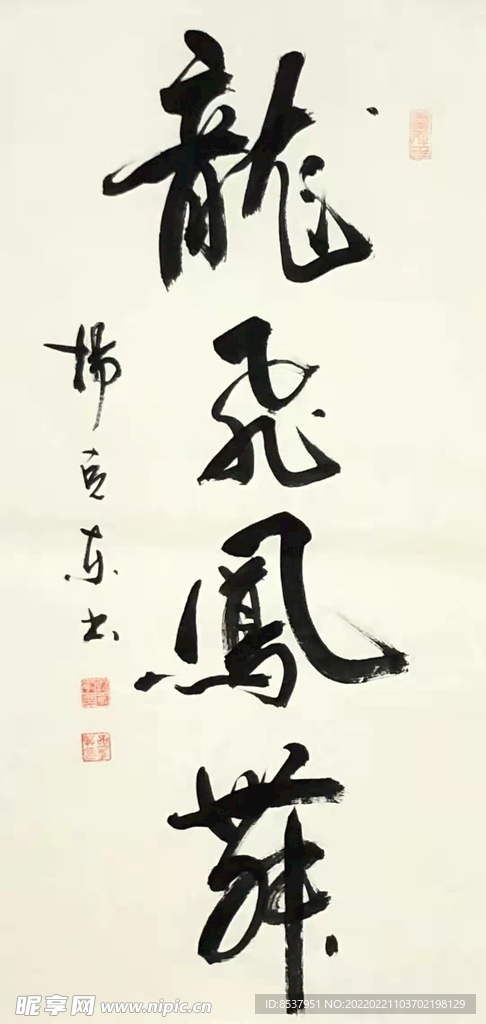 龍飛鳳舞
楊克东书
昵享网 www.nipic.cn
ID:8537951 NO:20220221103702198129